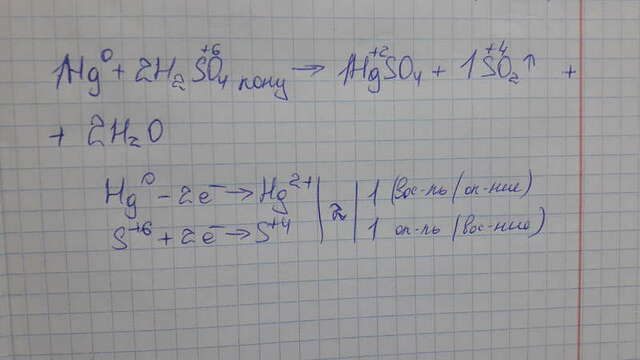 1Hg⁰ + 2H₂S⁺⁶O₄ конц → 1Hg⁺²SO₄ + 1S⁺⁴O₂↑ +
+ 2H₂O
Hg⁰ - 2e⁻ → Hg²⁺ | 2 | 1 (вос-ль/ок-ние)
S⁺⁶ + 2e⁻ → S⁺⁴ | 1 ок-ль (вос-ние)